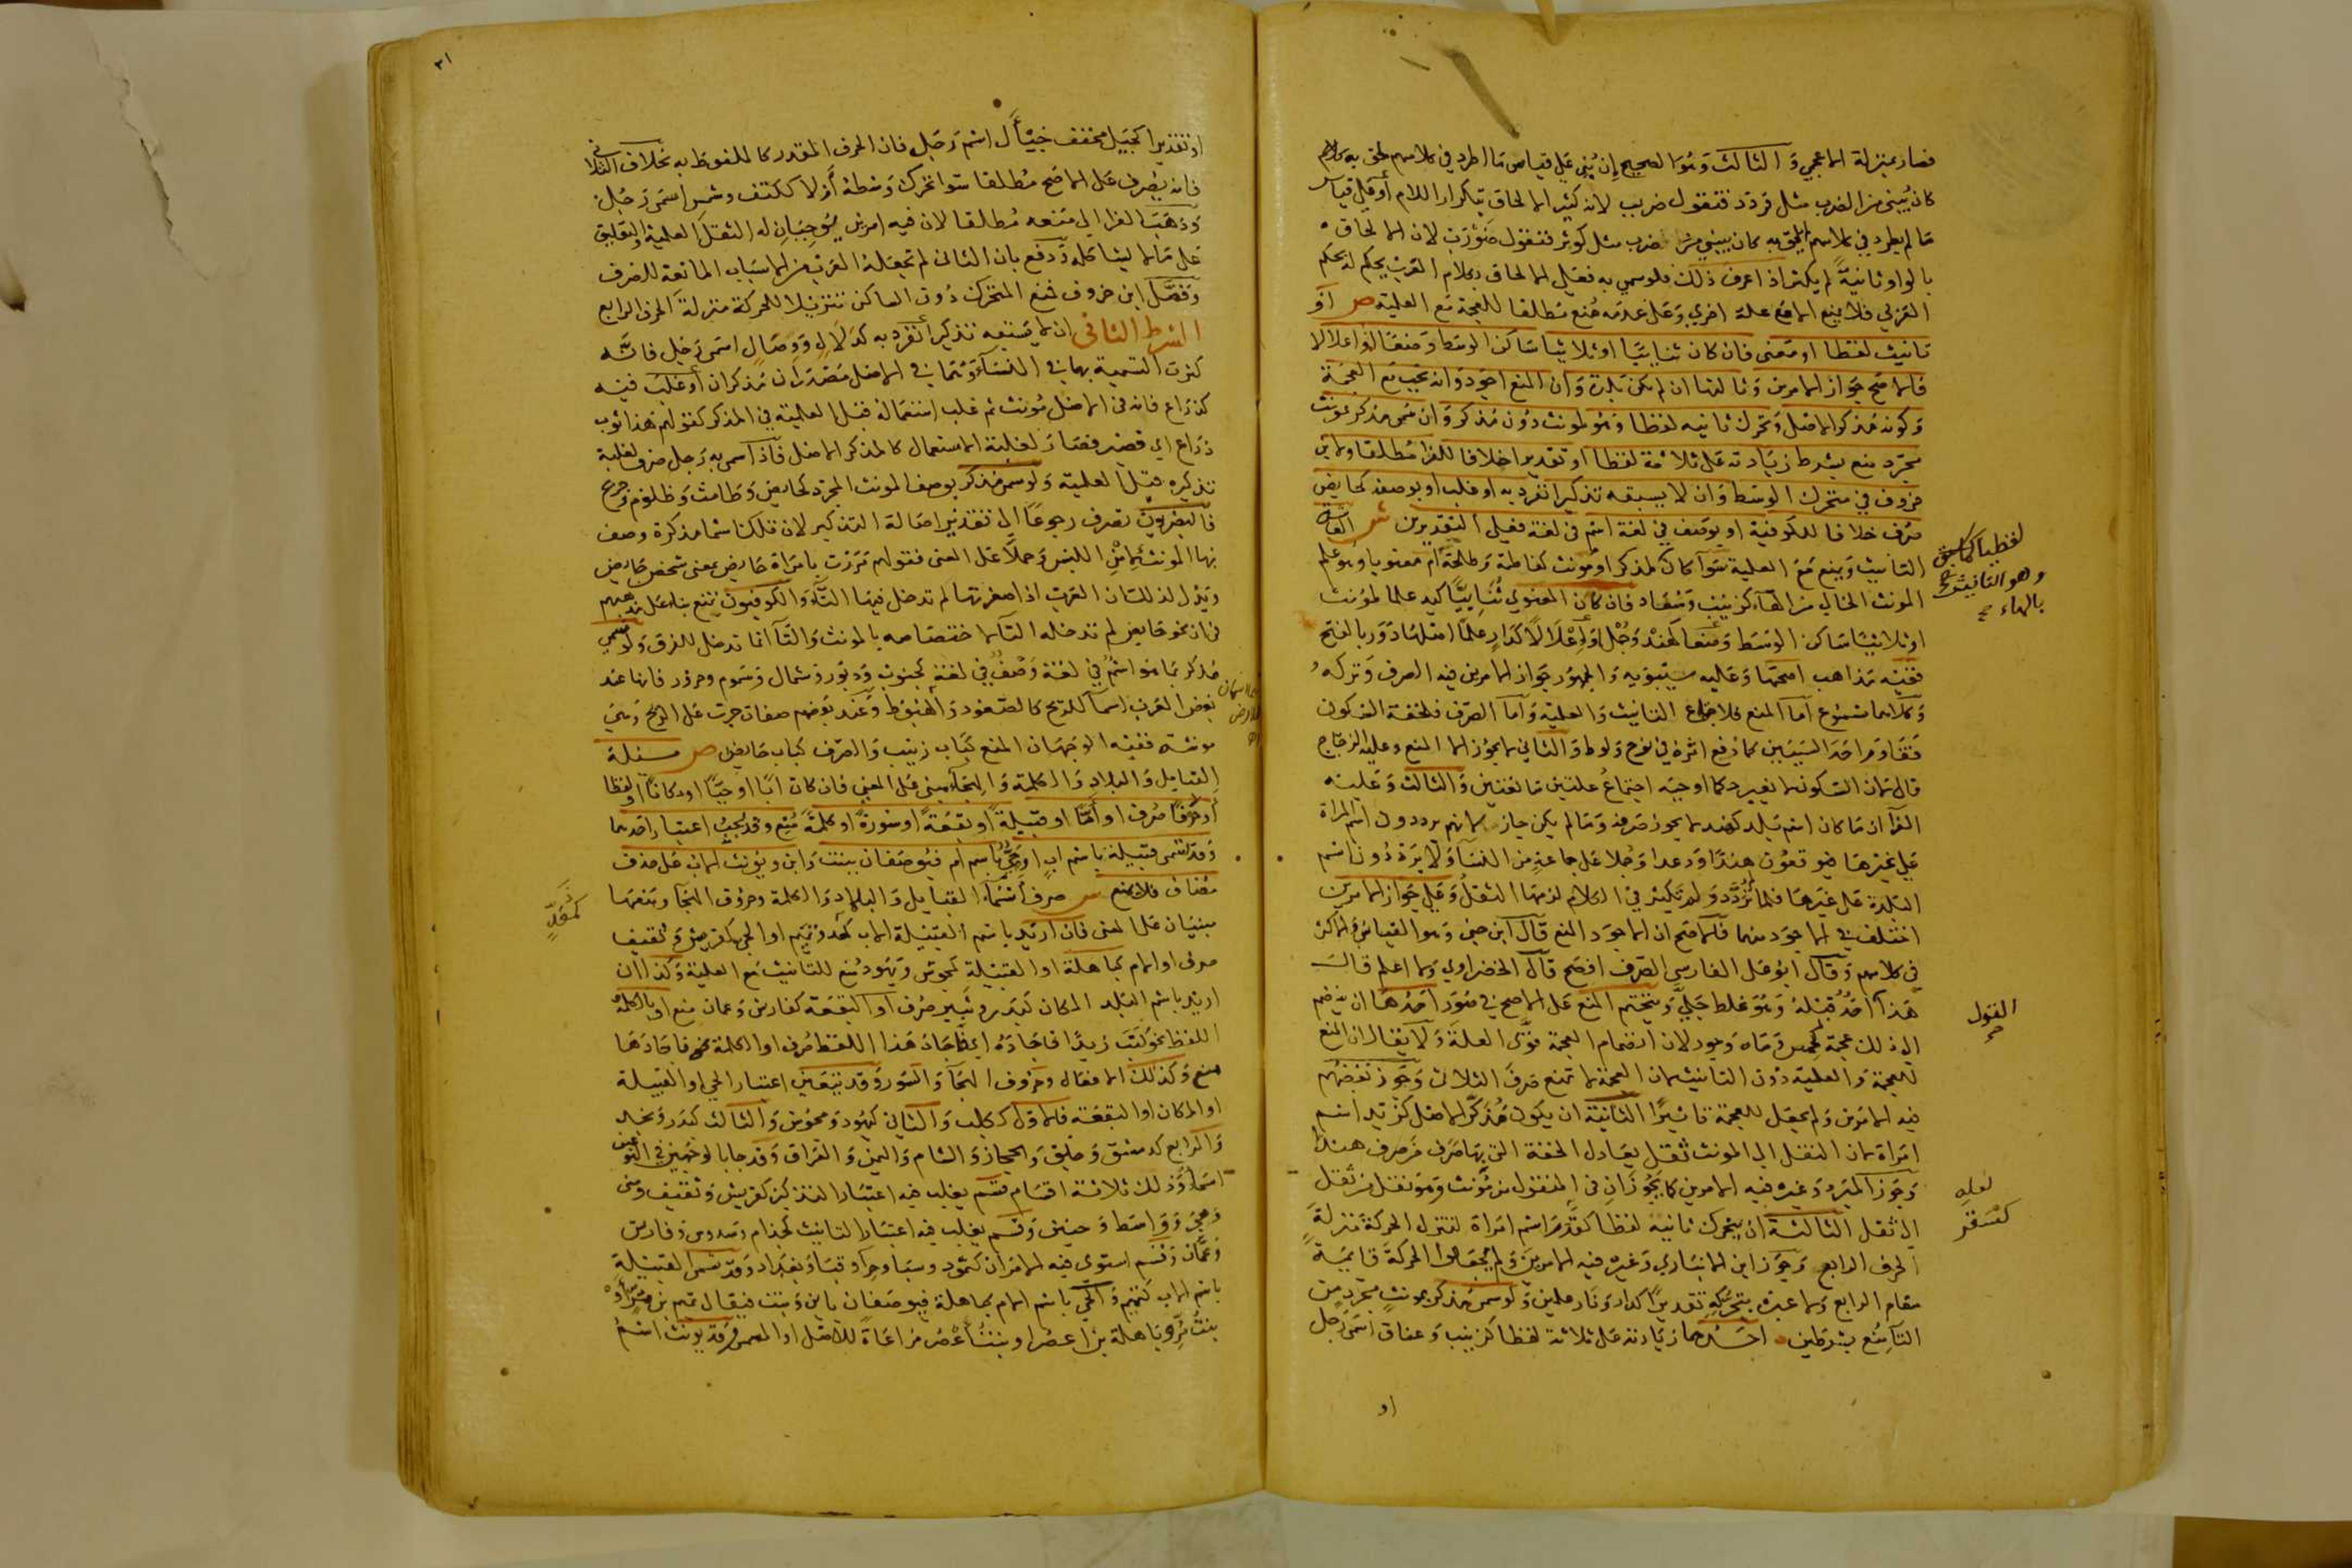 فصار بمنزلة الاعجمي والثالث وهو الصحيح إن بُني على قياس ما اطرد في كلامهم لحق به كلامهم
كان يبنى من الضرب مثل قردد فتقول ضربب لانه كثير الالحاق بتكرار اللام أو على قياس
ما لم يطرد في كلامهم لم يلحق به كان يبنى من ضرب مثل كوثر فتقول ضورب لان الالحاق
بالواو ثانية لم يكثر اذ اعرف ذلك فلو سمي به فعلى الالحاق بكلام العرب يحكم له بحكم
العربي فلا يمنع الا مع علة اخرى وعلى عدمه مُنع مطلقا للعجمة مع العلمية ص او
تانيث لفظا او معنى فان كان ثنائيا او ثلاثيا ساكن الوسط وضعا او اعلالا
فالاصح جواز الامرين وثالثها ان لم يكن بلدة وان المنع اجود وانه يجب مع العجمة
وكونه مذكر الاصل وتحرك ثانيه لفظا وهو لمونث دون مذكر وان سمي مذكر بمونث
مجرد منع بشرط زيادته على ثلاثة لفظا او تقديرا خلافا للفرا مطلقا ولابن
خروف في متحرك الوسط وان لا يسبقه تذكير انفرد به او غلب او بوصفه كحايض
صرف خلافا للكوفية او بوصف في لغة اسم في لغة فعلى التقديرين ش العاشرة
التانيث ويمنع مع العلمية سوآ كان لمذكر او مونث كفاطمة وطلحة أم معنويا وهو علم
المونث الخالي من الهآء كزينب وسعاد فان كان المعنوي ثنائيًا كيد علما لمؤنث
او ثلاثيا ساكن الوسط وضعا كهند وجمل او إعلالا كدار علمًا اصلها دَوَر بالفتح
ففيه مذاهب اصحها وعليه سيبويه والجمهور جواز الامرين فيه الصرف وتركه
وكلاهما مسموع أما المنع فلاجتماع التانيث والعلمية وأما الصرف فلخفة السكون
فتقاوم احد السببين كما دُفع اثره في نوح ولوط والثاني لا يجوز الا المنع وعليه الزجاج
قال لان السكون لا يغير حكما اوجبه اجتماع علتين مانعتين والثالث وعليه
الفرا ان ما كان اسم بلد كفيد لا يجوز صرفه وما لم يكن جاز لانهم يرددون اسم المراة
على غيرها فيوقعون هندًا ودعدا وجملا على جماعة من النسآ ولا يرد دون اسم
البلدة على غيرها فلما لم تُردد ولم تكثر في الكلام لزمها الثقل وعلى جواز الامرين
اختلف في الاجود منهما فالاصح ان الاجود المنع قال ابن جني وهو القياس والاكثر
في كلامهم وقال ابو علي الفارسي الصرف افصح قال الخضراوي ولا اعلم قالـ
هذا احد قبله وهو غلط جلي ويتحتم المنع على الاصح في صور احدها ان ينضم
الى ذلك عجمة كحمص وماه وجور لان انضمام العجمة قوى العلة ولا يقال ان المنع
للعجمة والعلمية دون التانيث لان العجمة لا تمنع صرف الثلاثي وجوز بعضهم
فيه الامرين ولم يجعل للعجمة تاثيرًا الثانية ان يكون مذكر الاصل كزيد اسم
امراة لان النقل الى المونث ثقل يعادل الخفة التي بها صرف مَن صرف هندًا
وجوز المبرد وغيره فيه الامرين كما يجوزان في المنقول من مونث وهو نقل من ثقل
الى ثقل الثالثة ان يتحرك ثانيه لفظا كقدم اسم امراة لتنزل الحركة منزلة
الحرف الرابع وجوز ابن الانباري وغيره فيه الامرين ولم يجعلوا الحركة قايمة
مقام الرابع ولا عبرة بتحركه تقديرًا كدار ونار علمين ولو سمي مذكر بمونث مجرد من
التآ مُنع بشرطين احدهما زيادته على ثلاثة لفظا كزينب وعناق اسم رجل
او
وهو التانيث
بالهاء
القول
لعله
كسقر
٣١
او تقديرا كجيل مخفف جيأل اسم رجل فان الحرف المقدر كالملفوظ به بخلاف الثلاثي
فانه يصرف على الاصح مطلقا سوا تحرك وسطه أم لا ككتف وشمس اسمي رجل
وذهب الفرا الى منعه مطلقا لان فيه امرين يوجبان له الثقل العلمية والتعليق
على ما لا يشاكله ودفع بان الثاني لم تجعله العرب من الاسباب المانعة للصرف
وفصل ابن خروف فمنع المتحرك دون الساكن تنزيلا للحركة منزلة الحرف الرابع
الشرط الثاني ان لا يسبقه تذكير انفرد به كدلال ووصال اسمي رجل فانه
كثرت التسمية بهما في النسآء وهما في الاصل مصدران مذكران أو غلب فيه
كذراع فانه في الاصل مونث ثم غلب استعماله قبل العلمية في المذكر كقولهم هذا ثوب
ذراع اي قصير فصار لغلبة الاستعمال كالمذكر الاصل فاذا سمي به رجل صرف لغلبة
تذكيره قبل العلمية ولو سمي مذكر بوصف المونث المجرد كحايض وطامث وظلوم وجرح
فالبصريون تصرف رجوعًا الى تقدير اصالة التذكير لان تلك اسما مذكرة وصف
بها المونث لامن اللبس وحملًا على المعنى فقولهم مررت بامراة حايض بمعنى شخص حايض
ويدل لذلك ان العرب اذا صغرتها لم تدخل فيها التآء والكوفيون تمنع بناء على مذهبهم
في ان نحو حايض لم تدخله التآ لاختصاصه بالمونث والتآ انما تدخل للفرق ولو سمي
مذكر بما هو اسم في لغة وصف في لغة كجنوب ودبور وشمال وسموم وحرور فانها عند
بعض العرب اسمآ للريح كالصعود والهبوط وعند بعضهم صفات جرت على الريح وهي
مونثة ففيه الوجهان المنع كباب زينب والصرف كباب حايض ص مسئلة
القبايل والبلاد والكلمة والهجآء مبني على المعنى فان كان ابًا او حيًّا او مكانًا او لفظا
أو حرفًا صُرف او أمًّا او قبيلة او بقعة او سورة او كلمة مُنع وقد يجب اعتبار احدهما
وقد تسمى قبيلة باسم ابٍ او حيّ باسم ام فيوصفان ببنت وابن ويونث الاب على حذف
مضاف فلا يمنع ش صرف أسمآء القبايل والبلاد والكلمة وحروف الهجا ومنعها
مبنيان على المعنى فان اريد باسم القبيلة الاب كمعد وتميم او الحي كقريش وثقيف
صرف او الام كباهلة او القبيلة كمجوس ويهود مُنع للتانيث مع العلمية وكذا ان
اريد باسم البلد المكان كبدر وثبير صُرف او البقعة كفارس وعمان منع او بالكلمة
اللفظ نحو كتب زيدًا فاجاده اي فاجاد هذا اللفظ صُرف او الكلمة نحو فاجادها
منع وكذلك الافعال وحروف الهجآ والسور وقد يتعين اعتبار الحي او القبيلة
او المكان او البقعة فالاول ككلب والثاني كيهود ومجوس والثالث كبدر ونجد
والرابع كدمشق وجلق والحجاز والشام واليمن والعراق وقد جا بالوجهين في النوعين
اسمآ وذلك ثلاثة اقسام قسم يغلب فيه اعتبار التذكير كقريش وثقيف ومنى
وهجر وواسط وحنين وقسم يغلب فيه اعتبار التانيث كجذام وسدوس وفارس
وعمان وقسم استوى فيه الامران كثمود وسبا وحرآ وقبا وبغداد وقد تسمى القبيلة
باسم الاب كتميم والحي باسم الام كباهلة فيوصفان بابن وبنت فيقال تميم بن مر أو
بنت مُرّ وباهلة بن اعصر او بنت أعصر مراعاة للاصل او المسمى وقد يونث اسم
كمعدّ